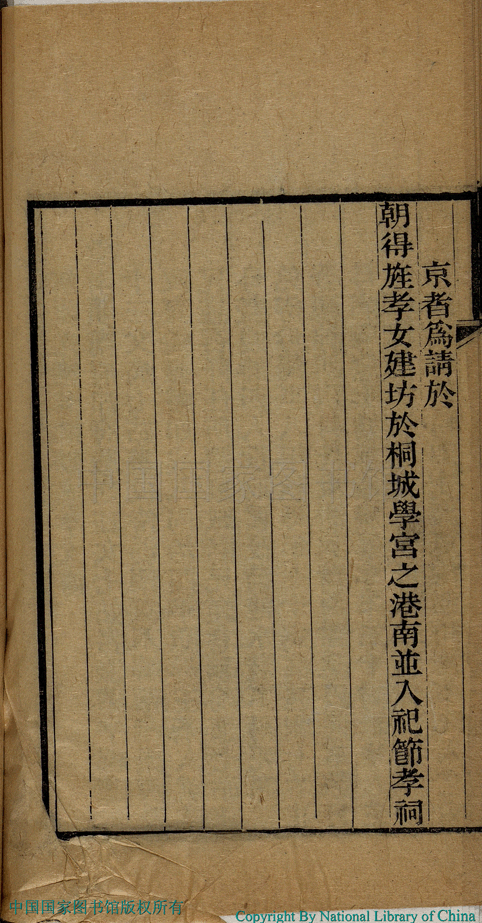 京者爲請於
朝得旌孝女建坊於桐城學宮之港南並入祀節孝祠
中国国家图书馆版权所有
Copyright By National Library of China